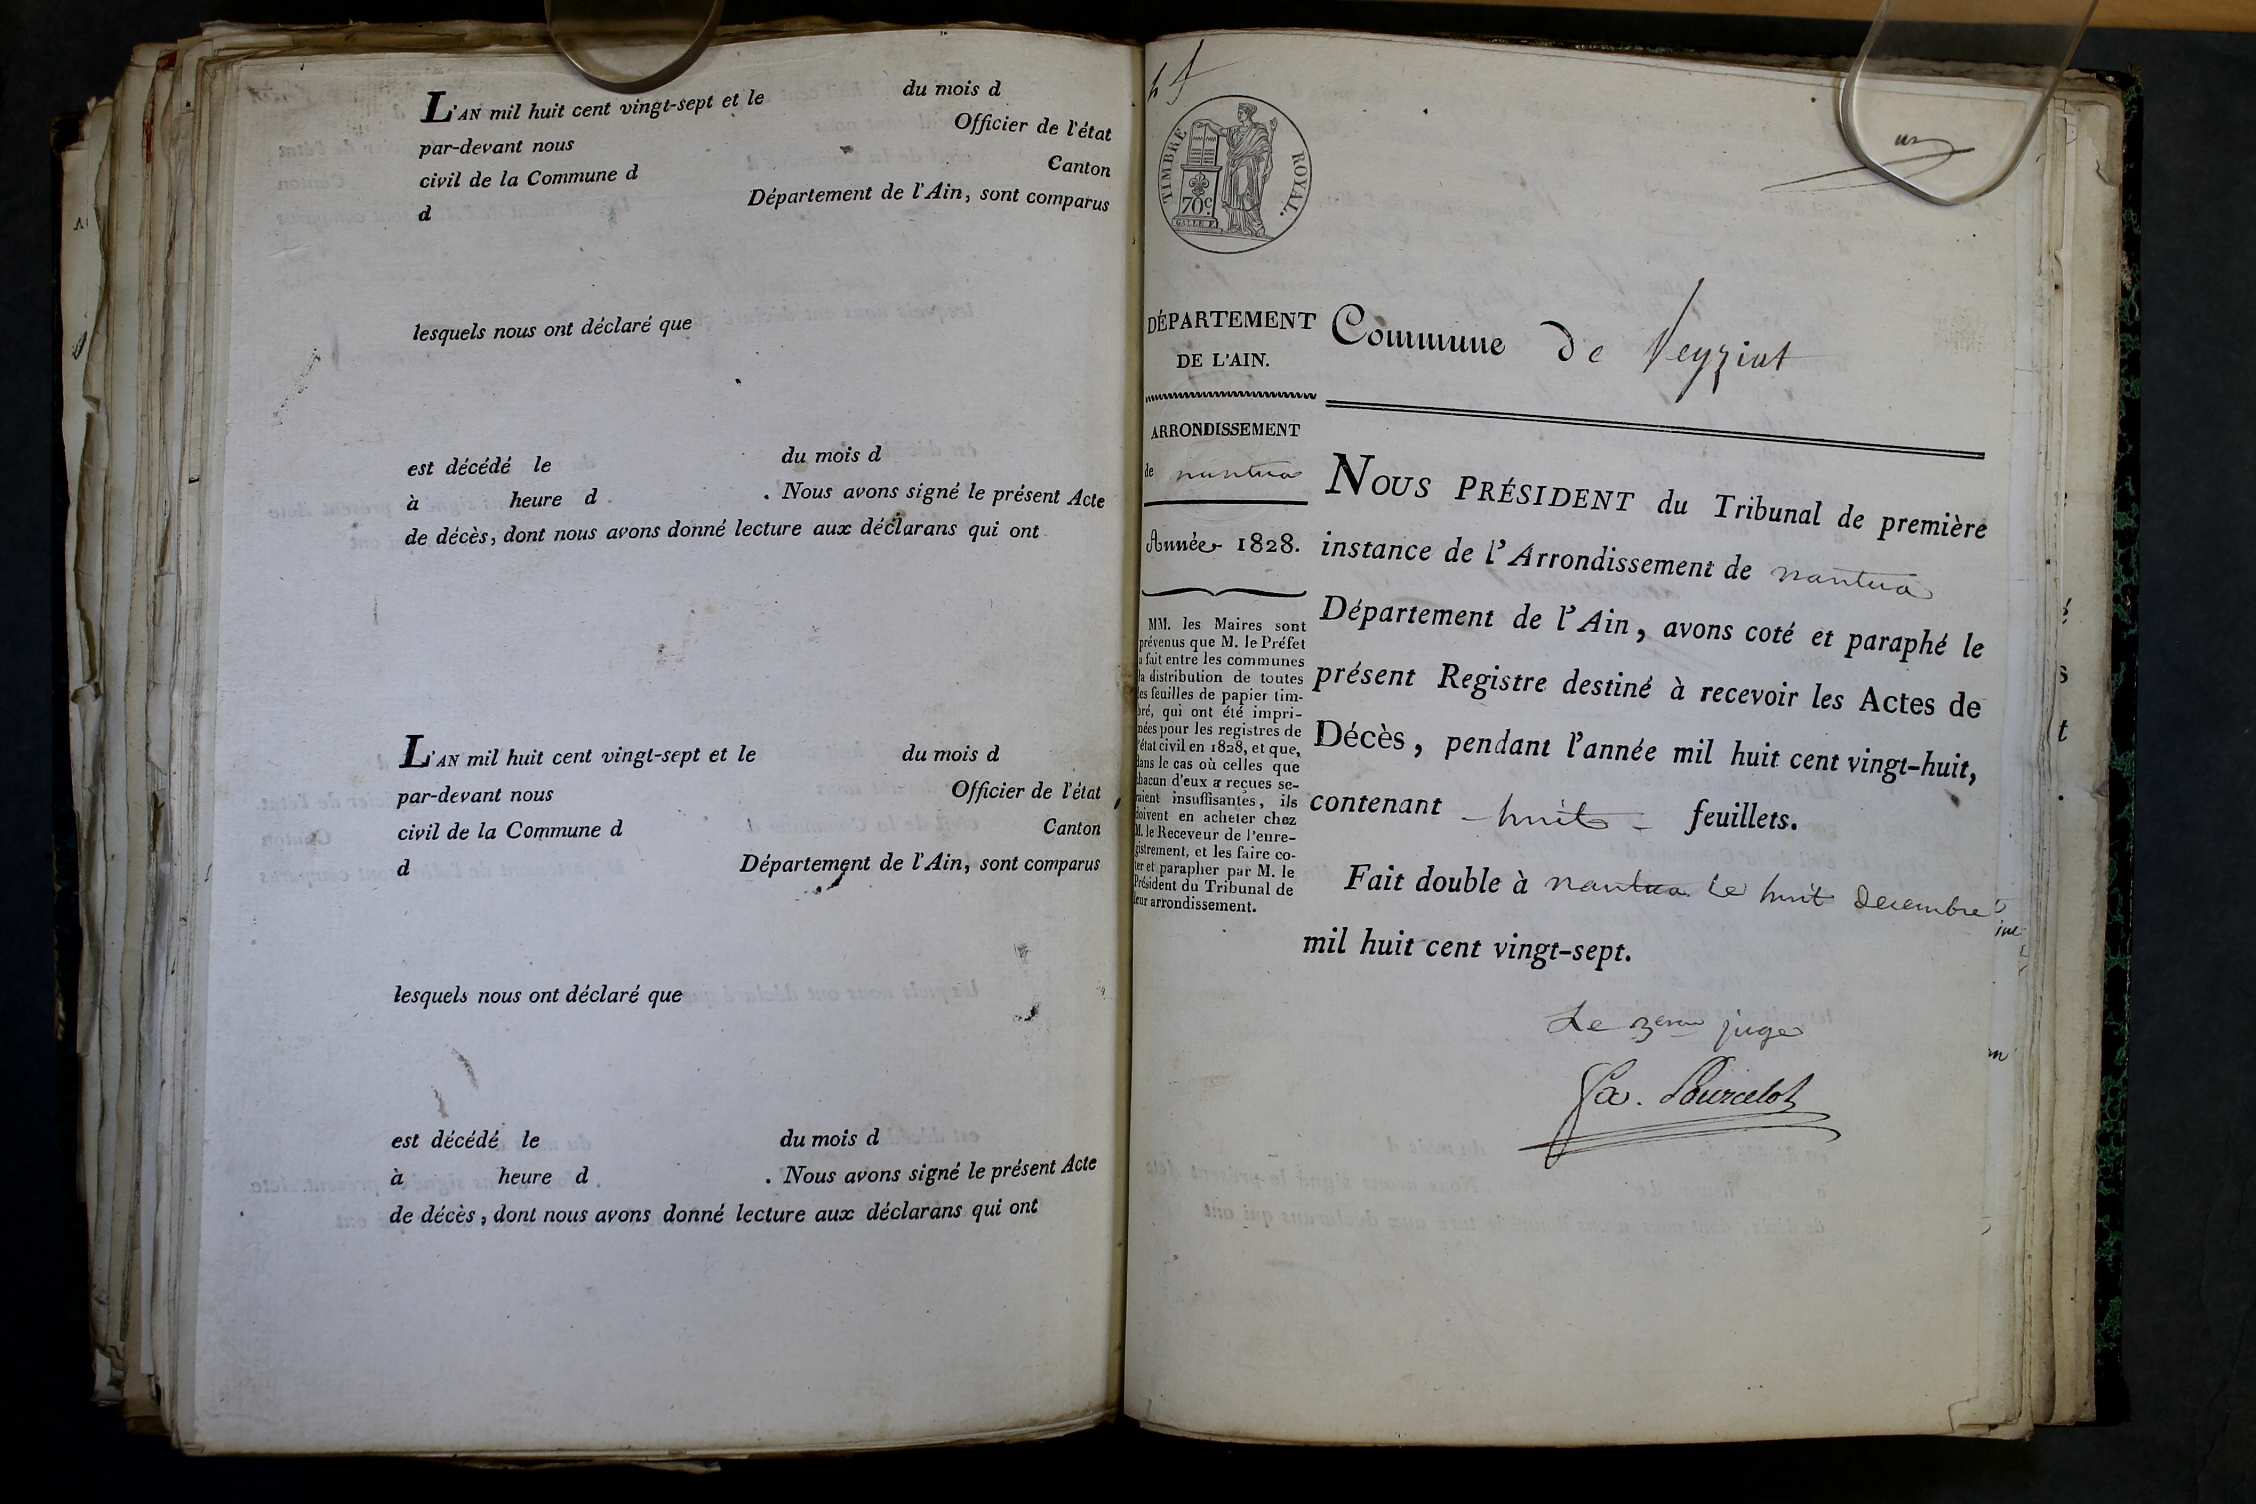 L'AN mil huit cent vingt-sept et le du mois d
par-devant nous Officier de l'état
civil de la Commune d Canton
d Département de l'Ain, sont comparus
lesquels nous ont déclaré que
est décédé le du mois d
à heure d . Nous avons signé le présent Acte
de décès, dont nous avons donné lecture aux déclarans qui ont
L'AN mil huit cent vingt-sept et le du mois d
par-devant nous Officier de l'état
civil de la Commune d Canton
d Département de l'Ain, sont comparus
lesquels nous ont déclaré que
est décédé le du mois d
à heure d . Nous avons signé le présent Acte
de décès, dont nous avons donné lecture aux déclarans qui ont
un
TIMBRE ROYAL.
70c.
DÉPARTEMENT
DE L'AIN.
ARRONDISSEMENT
de nantua
Année 1828.
MM. les Maires sont
prévenus que M. le Préfet
a fait entre les communes
la distribution de toutes
les feuilles de papier tim-
bré, qui ont été impri-
mées pour les registres de
l'état civil en 1828, et que,
dans le cas où celles que
chacun d'eux a reçues se-
raient insuffisantes, ils
doivent en acheter chez
M. le Receveur de l'enre-
gistrement, et les faire co-
ter et parapher par M. le
Président du Tribunal de
leur arrondissement.
Commune de Veyziat
NOUS PRÉSIDENT du Tribunal de première
instance de l'Arrondissement de nantua
Département de l'Ain, avons coté et paraphé le
présent Registre destiné à recevoir les Actes de
Décès, pendant l'année mil huit cent vingt-huit,
contenant - huit - feuillets.
Fait double à nantua le huit decembre
mil huit cent vingt-sept.
Le 3eme juge
Pourcelot